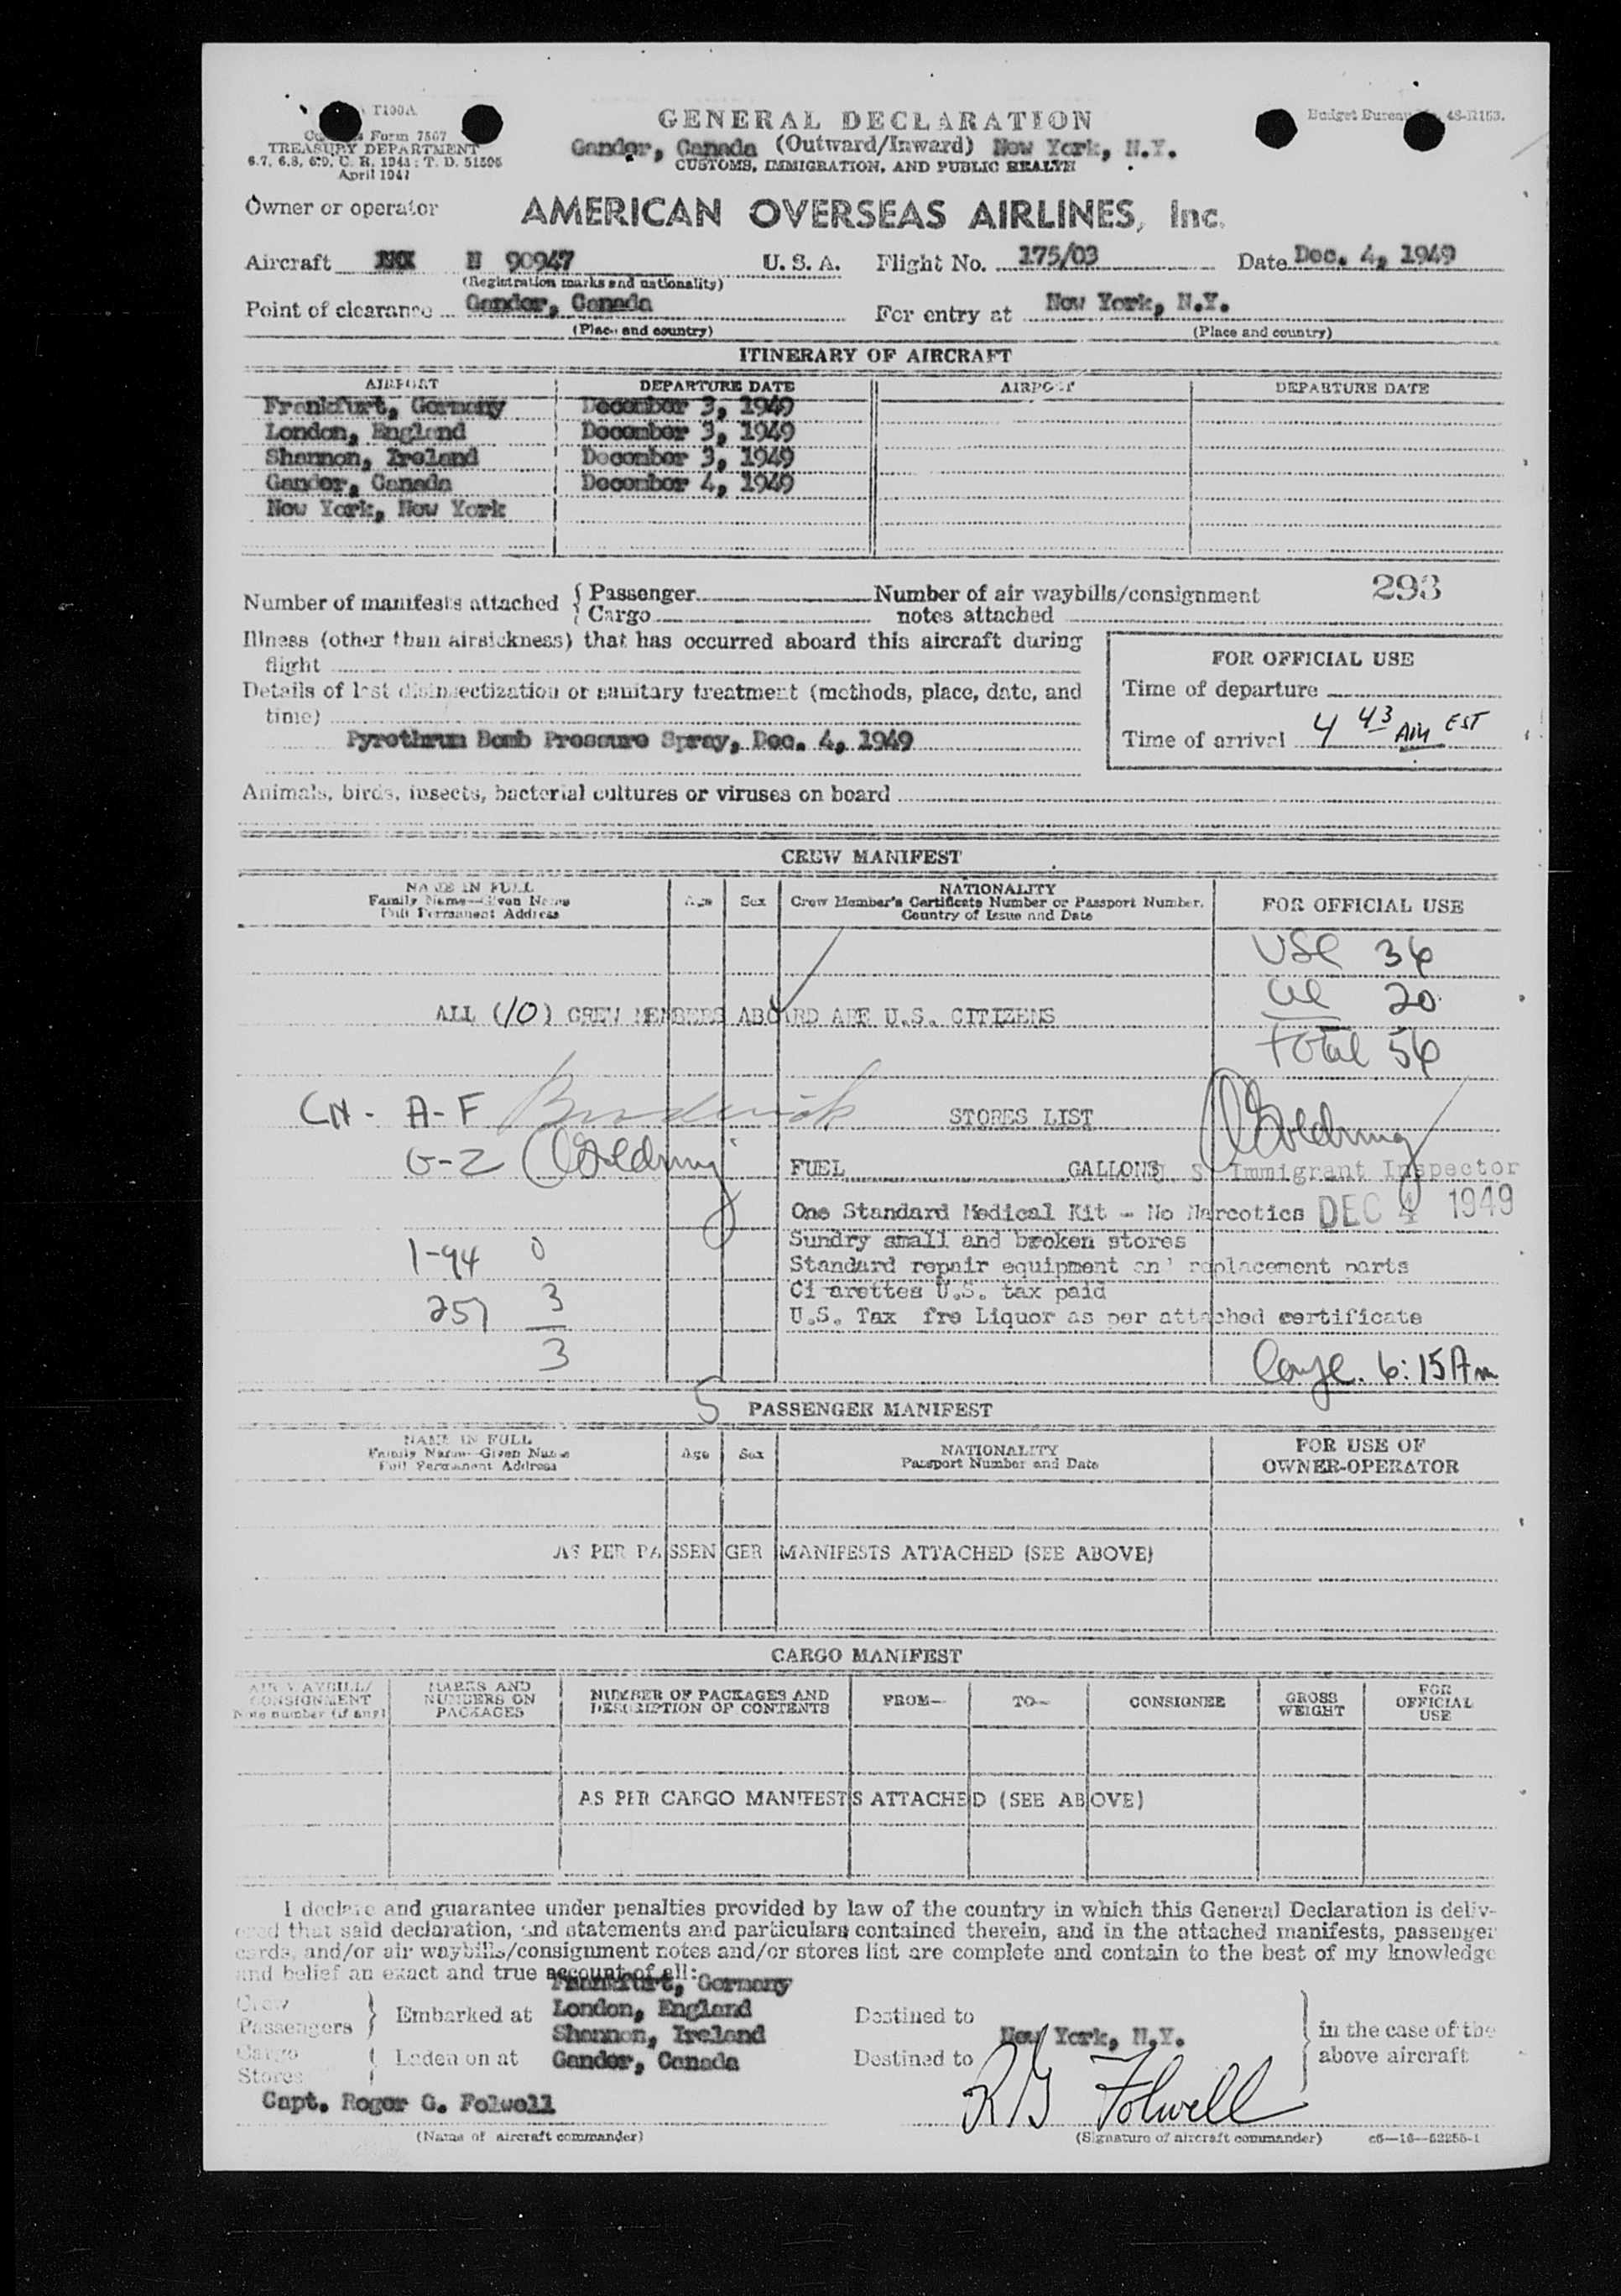 T100A
Form 7507
TREASURY DEPARTMENT
6.7, 6.8, 6.9, C. R. 1943; T. D. 51595
April 1947
GENERAL DECLARATION
Gander, Canada (Outward/Inward) New York, N.Y.
CUSTOMS, IMMIGRATION, AND PUBLIC HEALTH
Budget Bureau 48-R153.
Owner or operator AMERICAN OVERSEAS AIRLINES, Inc.
Aircraft XXX N 90947 U. S. A. Flight No. 175/03 Date Dec. 4, 1949
(Registration marks and nationality)
Point of clearance Gander, Canada For entry at New York, N.Y.
(Place and country) (Place and country)
ITINERARY OF AIRCRAFT
AIRPORT DEPARTURE DATE AIRPORT DEPARTURE DATE
Frankfurt, Germany December 3, 1949
London, England December 3, 1949
Shannon, Ireland December 3, 1949
Gander, Canada December 4, 1949
New York, New York
293
Number of manifests attached { Passenger Number of air waybills/consignment
Cargo notes attached
Illness (other than airsickness) that has occurred aboard this aircraft during
flight
Details of last disinsectization or sanitary treatment (methods, place, date, and
time)
Pyrethrum Bomb Pressure Spray, Dec. 4, 1949
FOR OFFICIAL USE
Time of departure
Time of arrival 4 43 AM EST
Animals, birds, insects, bacterial cultures or viruses on board
CREW MANIFEST
NAME IN FULL
Family Name—Given Name
Full Permanent Address
Age Sex
NATIONALITY
Crew Member's Certificate Number or Passport Number.
Country of Issue and Date
FOR OFFICIAL USE
USC 36
al 20
ALL (10) CREW MEMBERS ABOARD ARE U.S. CITIZENS
Total 56
CN - A-F Broderick
STORES LIST
G-Z Goldring
Goldring
FUEL GALLONS
U. S. Immigrant Inspector
One Standard Medical Kit - No Narcotics
DEC 4 1949
Sundry small and broken stores
1-94 0
Standard repair equipment an' replacement parts
Ci arettes U.S. tax paid
257 3
U.S. Tax fre Liquor as per attached certificate
3
6:15 Am
5
PASSENGER MANIFEST
NAME IN FULL
Family Name—Given Name
Full Permanent Address
Age Sex
NATIONALITY
Passport Number and Date
FOR USE OF
OWNER-OPERATOR
AS PER PASSENGER MANIFESTS ATTACHED (SEE ABOVE)
CARGO MANIFEST
AIR WAYBILL/
CONSIGNMENT
Note number (if any)
MARKS AND
NUMBERS ON
PACKAGES
NUMBER OF PACKAGES AND
DESCRIPTION OF CONTENTS
FROM—
TO—
CONSIGNEE
GROSS
WEIGHT
FOR
OFFICIAL
USE
AS PER CARGO MANIFESTS ATTACHED (SEE ABOVE)
I declare and guarantee under penalties provided by law of the country in which this General Declaration is deliv-
ered that said declaration, and statements and particulars contained therein, and in the attached manifests, passenger
cards, and/or air waybills/consignment notes and/or stores list are complete and contain to the best of my knowledge
and belief an exact and true account of all:
Frankfurt, Germany
Crew
Passengers } Embarked at London, England Destined to
Shannon, Ireland New York, N.Y. } in the case of the
Cargo
Stores { Laden on at Gander, Canada Destined to above aircraft
Capt. Roger G. Folwell RG Folwell
(Name of aircraft commander) (Signature of aircraft commander) c6—16—52255-1